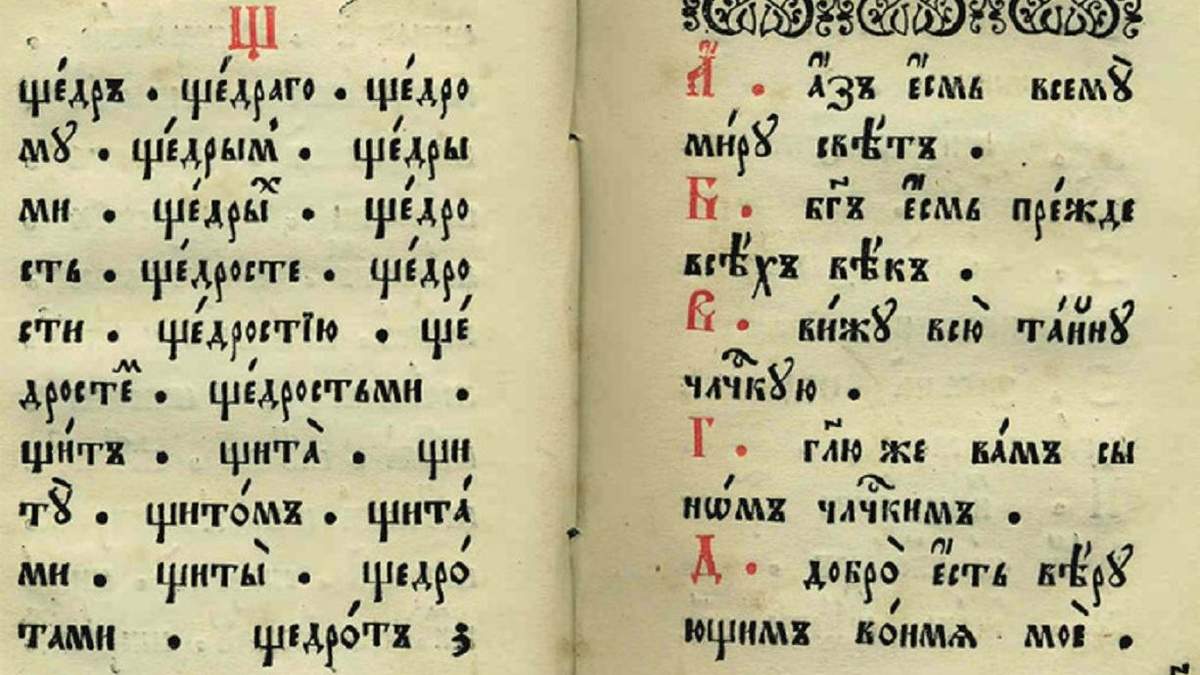 Щ
ще́дръ . ще́драго . ще́дро
мꙋ . ще́дрым̾ . ще́дры
ми . ще́дрыⷯ . ще́дро
сть . ще́дросте . ще́дро
сти . ще́дростїю . ще́
дростеⷨ . ще́дростьми .
щи́тъ . щита̀ . щи
тꙋ̀ . щито́мъ . щита́
ми . щиты̀ . щедро́
тами . щедро́тъ
А҆́ . а҆́зъ є҆́смь всемꙋ̀
ми́рꙋ свѣ́тъ .
Б . бг҃ъ є҆́смь пре́жде
всѣ́хъ вѣ́къ .
В . ви́жꙋ всю̀ та́йнꙋ
чл҃чⷭ҇кꙋю .
Г . гл҃ю же ва́мъ сы
нѡ́мъ чл҃чⷭ҇кимъ .
Д . добро̀ є҆́сть вѣ́рꙋ
ющимъ во́имѧ моѐ .